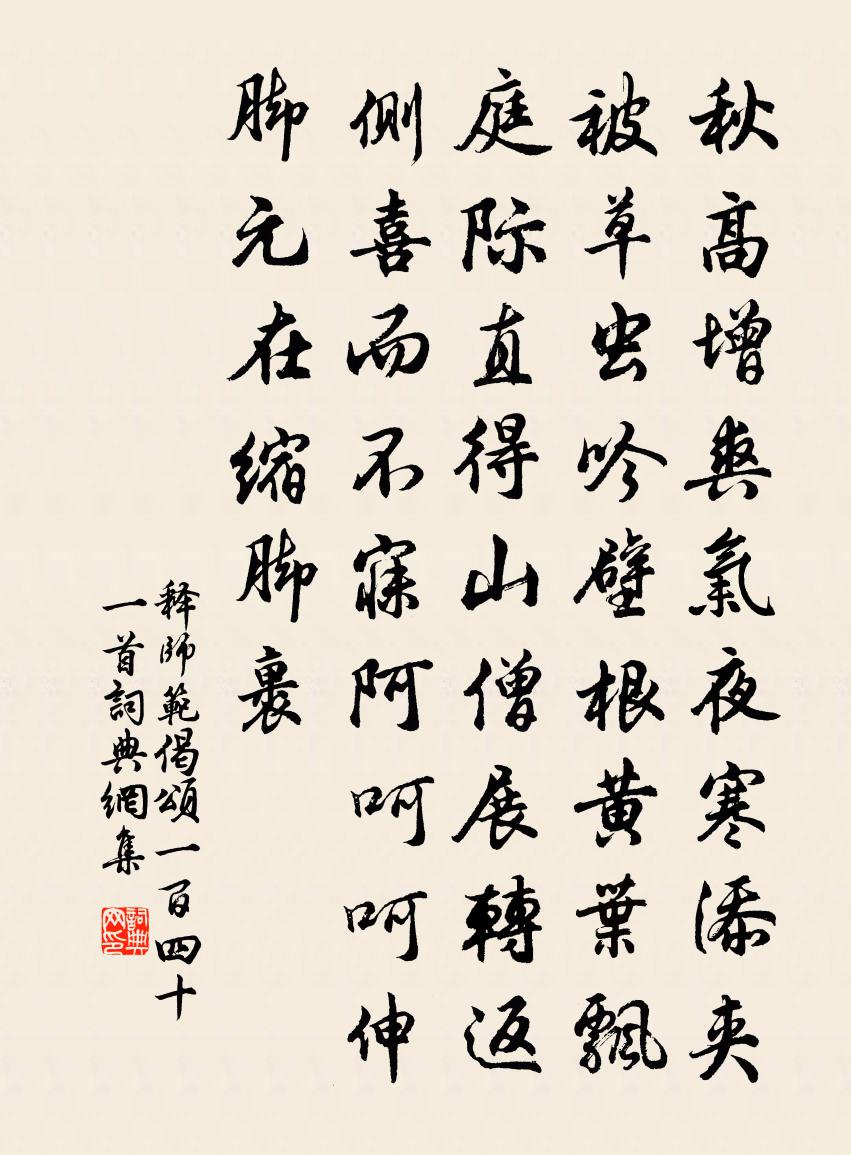 秋高增爽氣夜寒添夾
被草虫吟壁根黄葉飄
庭际直得山僧展轉返
側喜而不寐阿呵呵伸
脚元在缩脚裹
释師範偈頌一百四十
一首詞典網集
詞典网印